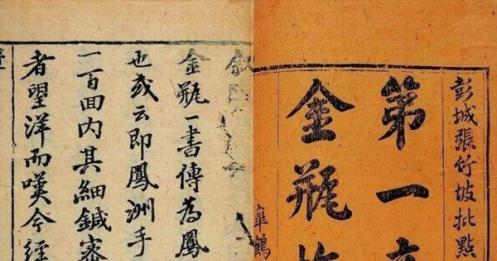 彭城張竹坡批點
第一
金瓶
皐鶴
金瓶一書傳為鳳
也或云即鳳洲手
一百囬内其細鍼密
者望洋而嘆今經